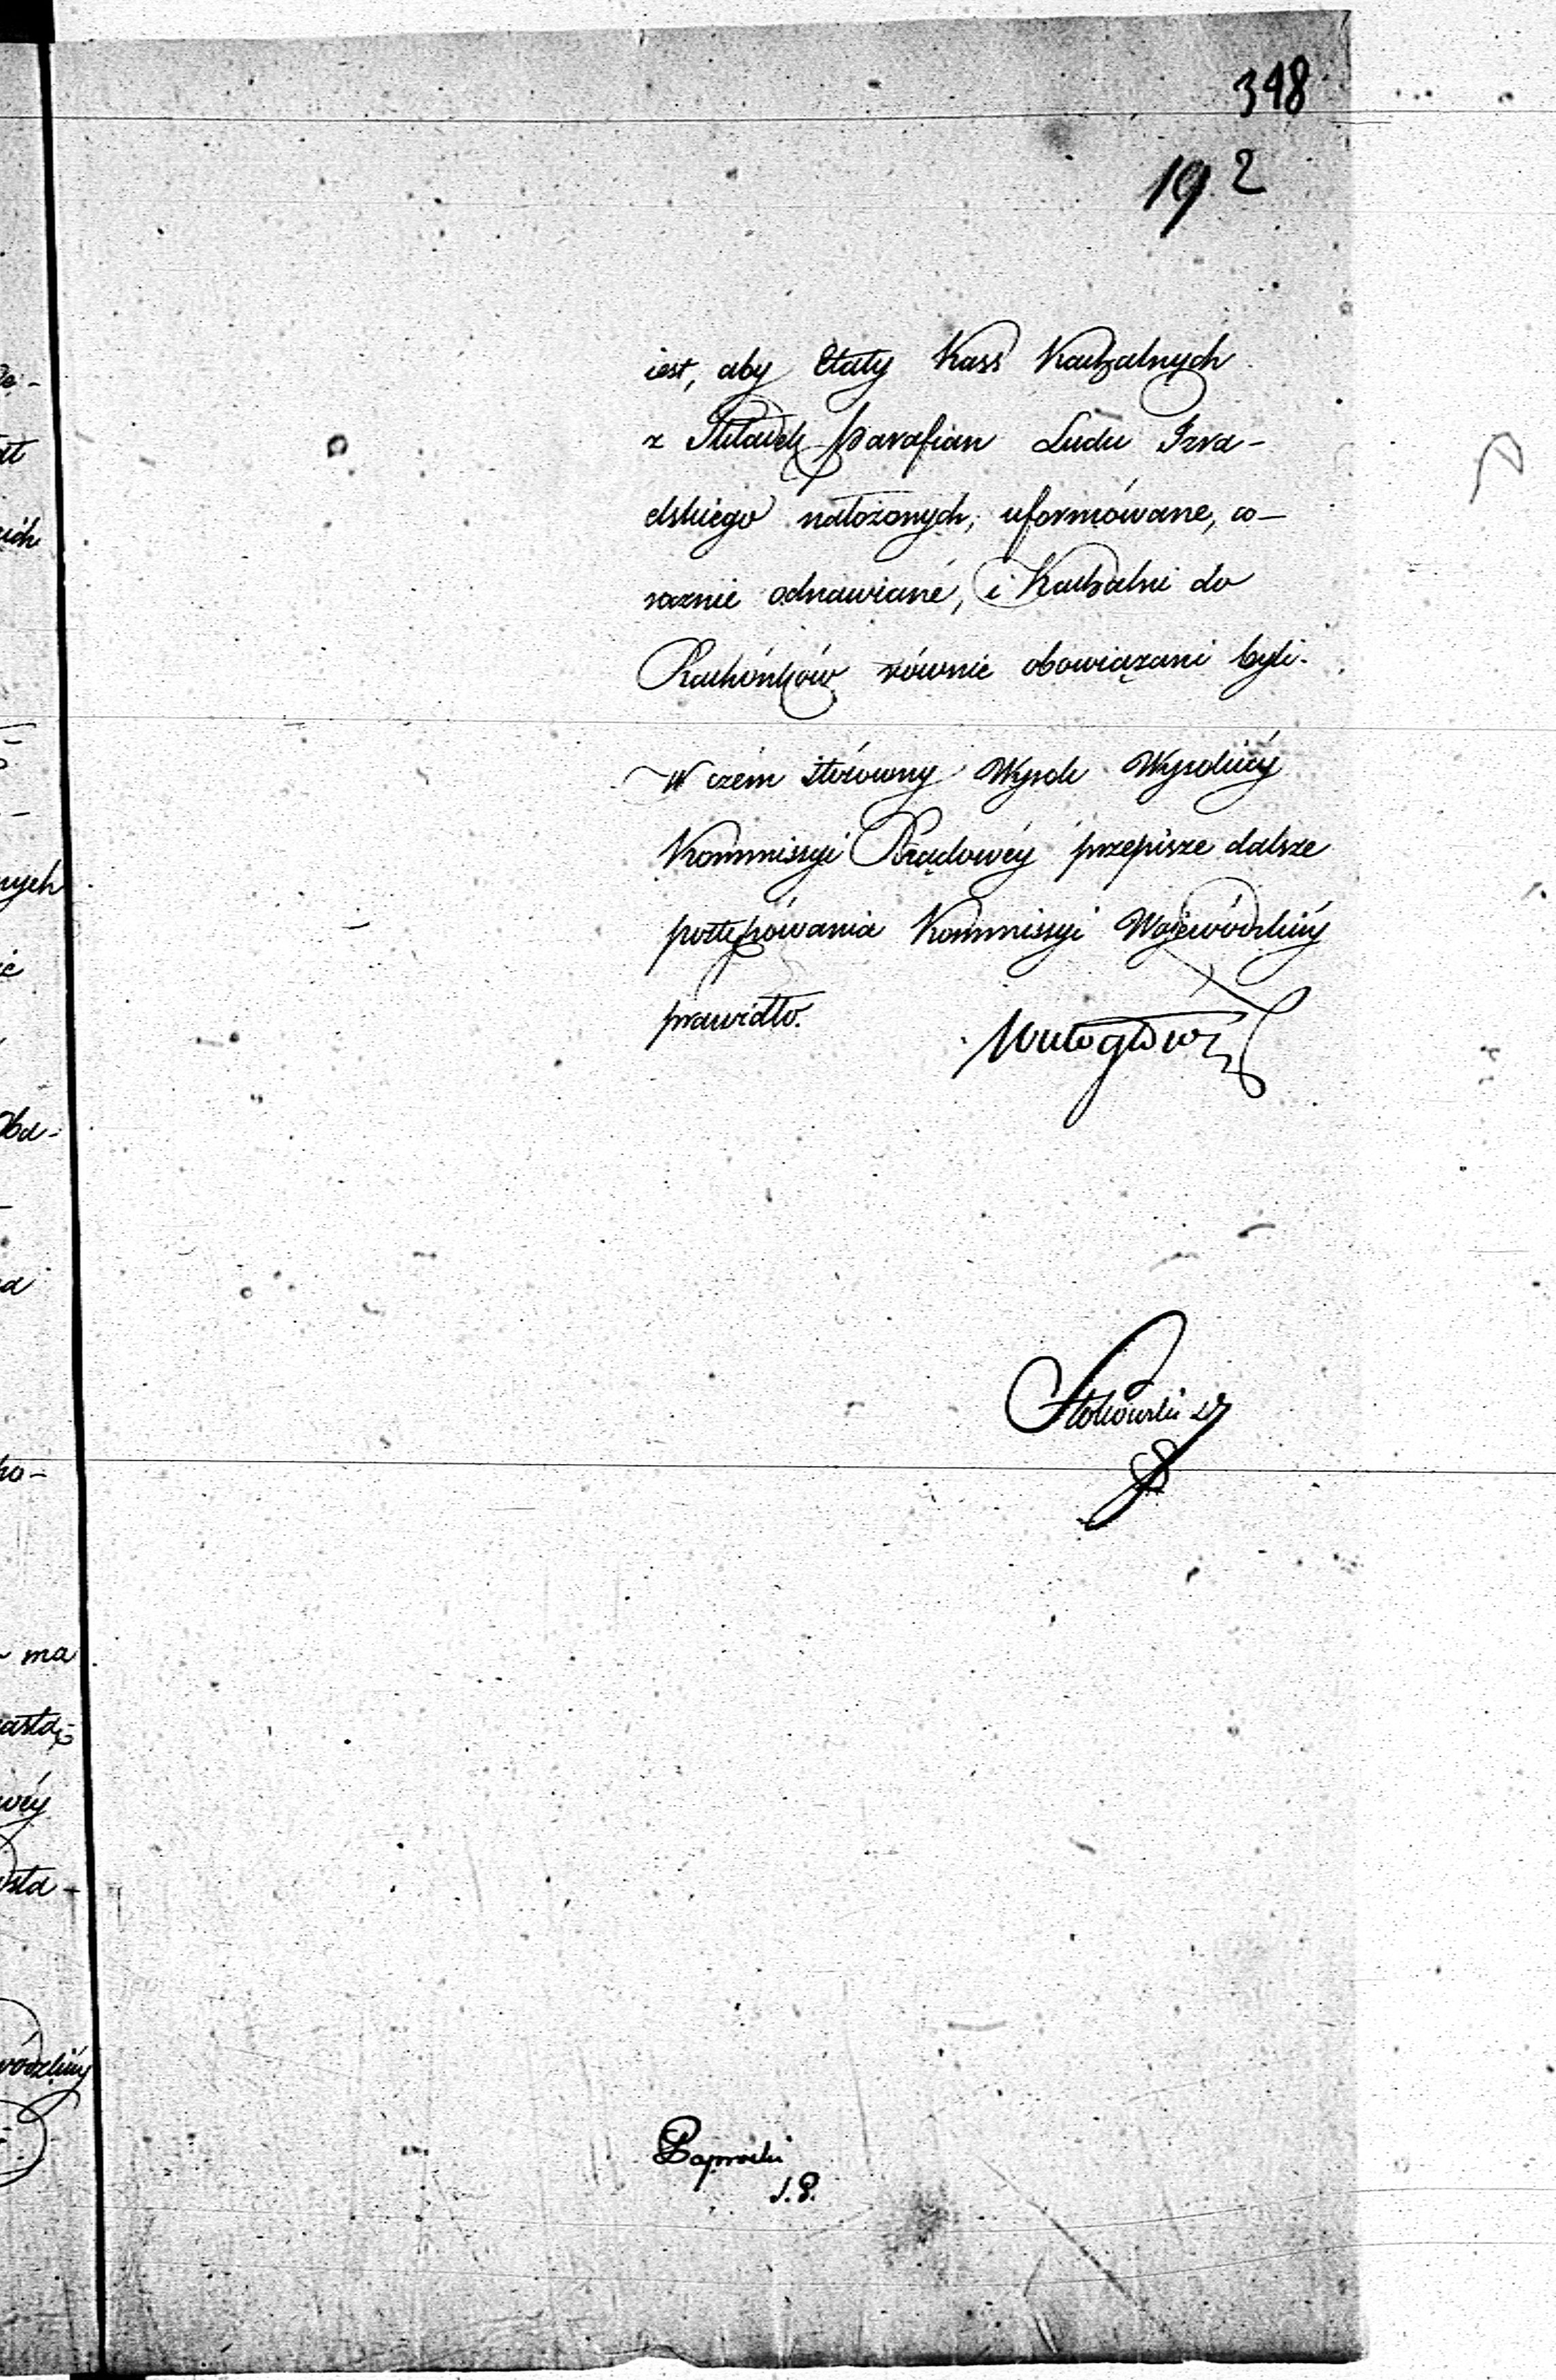 348
19 2
iest, aby Etaty Kass Kachalnych
z Składek parafian Ludu Izra-
elskiego nałożonych, uformówane, co-
rocznie odnawiané, i Kachalni do
Rachónków równie obowiązani byli.
W czém stósowny Wyrok Wysokiéy
Kommissyi Rządowéy przepisze dalsze
postępówania Kommissyi Wojewódzkiéy
prawidło.
Wielogłowski
Stokowski
Paprocki